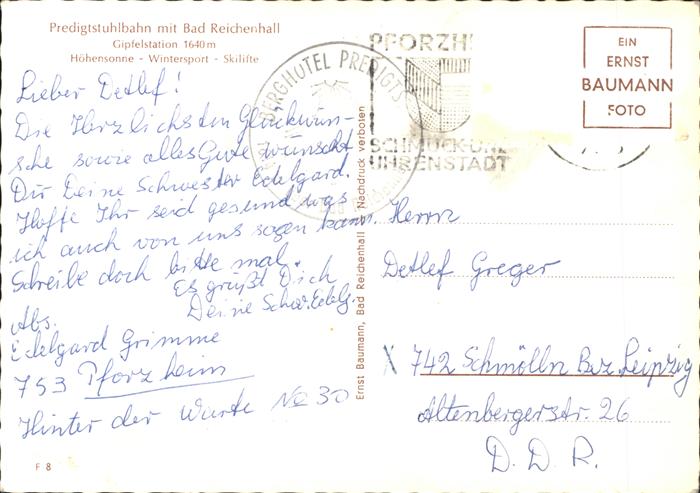 Predigtstuhlbahn mit Bad Reichenhall
Gipfelstation 1640 m
Höhensonne - Wintersport - Skilifte
Lieber Detlef!
Die Herzlichsten Glückwün-
sche sowie alles Gute wünscht
Dir Deine Schwester Edelgard.
Hoffe Ihr seid gesund was
ich auch von uns sagen kann.
Schreibe doch bitte mal.
Es grüßt Dich
Deine Schw. Edelg.
Abs.
Edelgard Grimme
753 Pforzheim
Hinter der Warte No 30
F 8
BERGHOTEL PREDIGTS
PFORZH
SCHMUCK-UND
UHRENSTADT
EIN
ERNST
BAUMANN
FOTO
Ernst Baumann, Bad Reichenhall Nachdruck verboten
Herrn
Detlef Greger
X 742 Schmölln Bz. Leipzig
Altenbergerstr. 26
D. D. R.